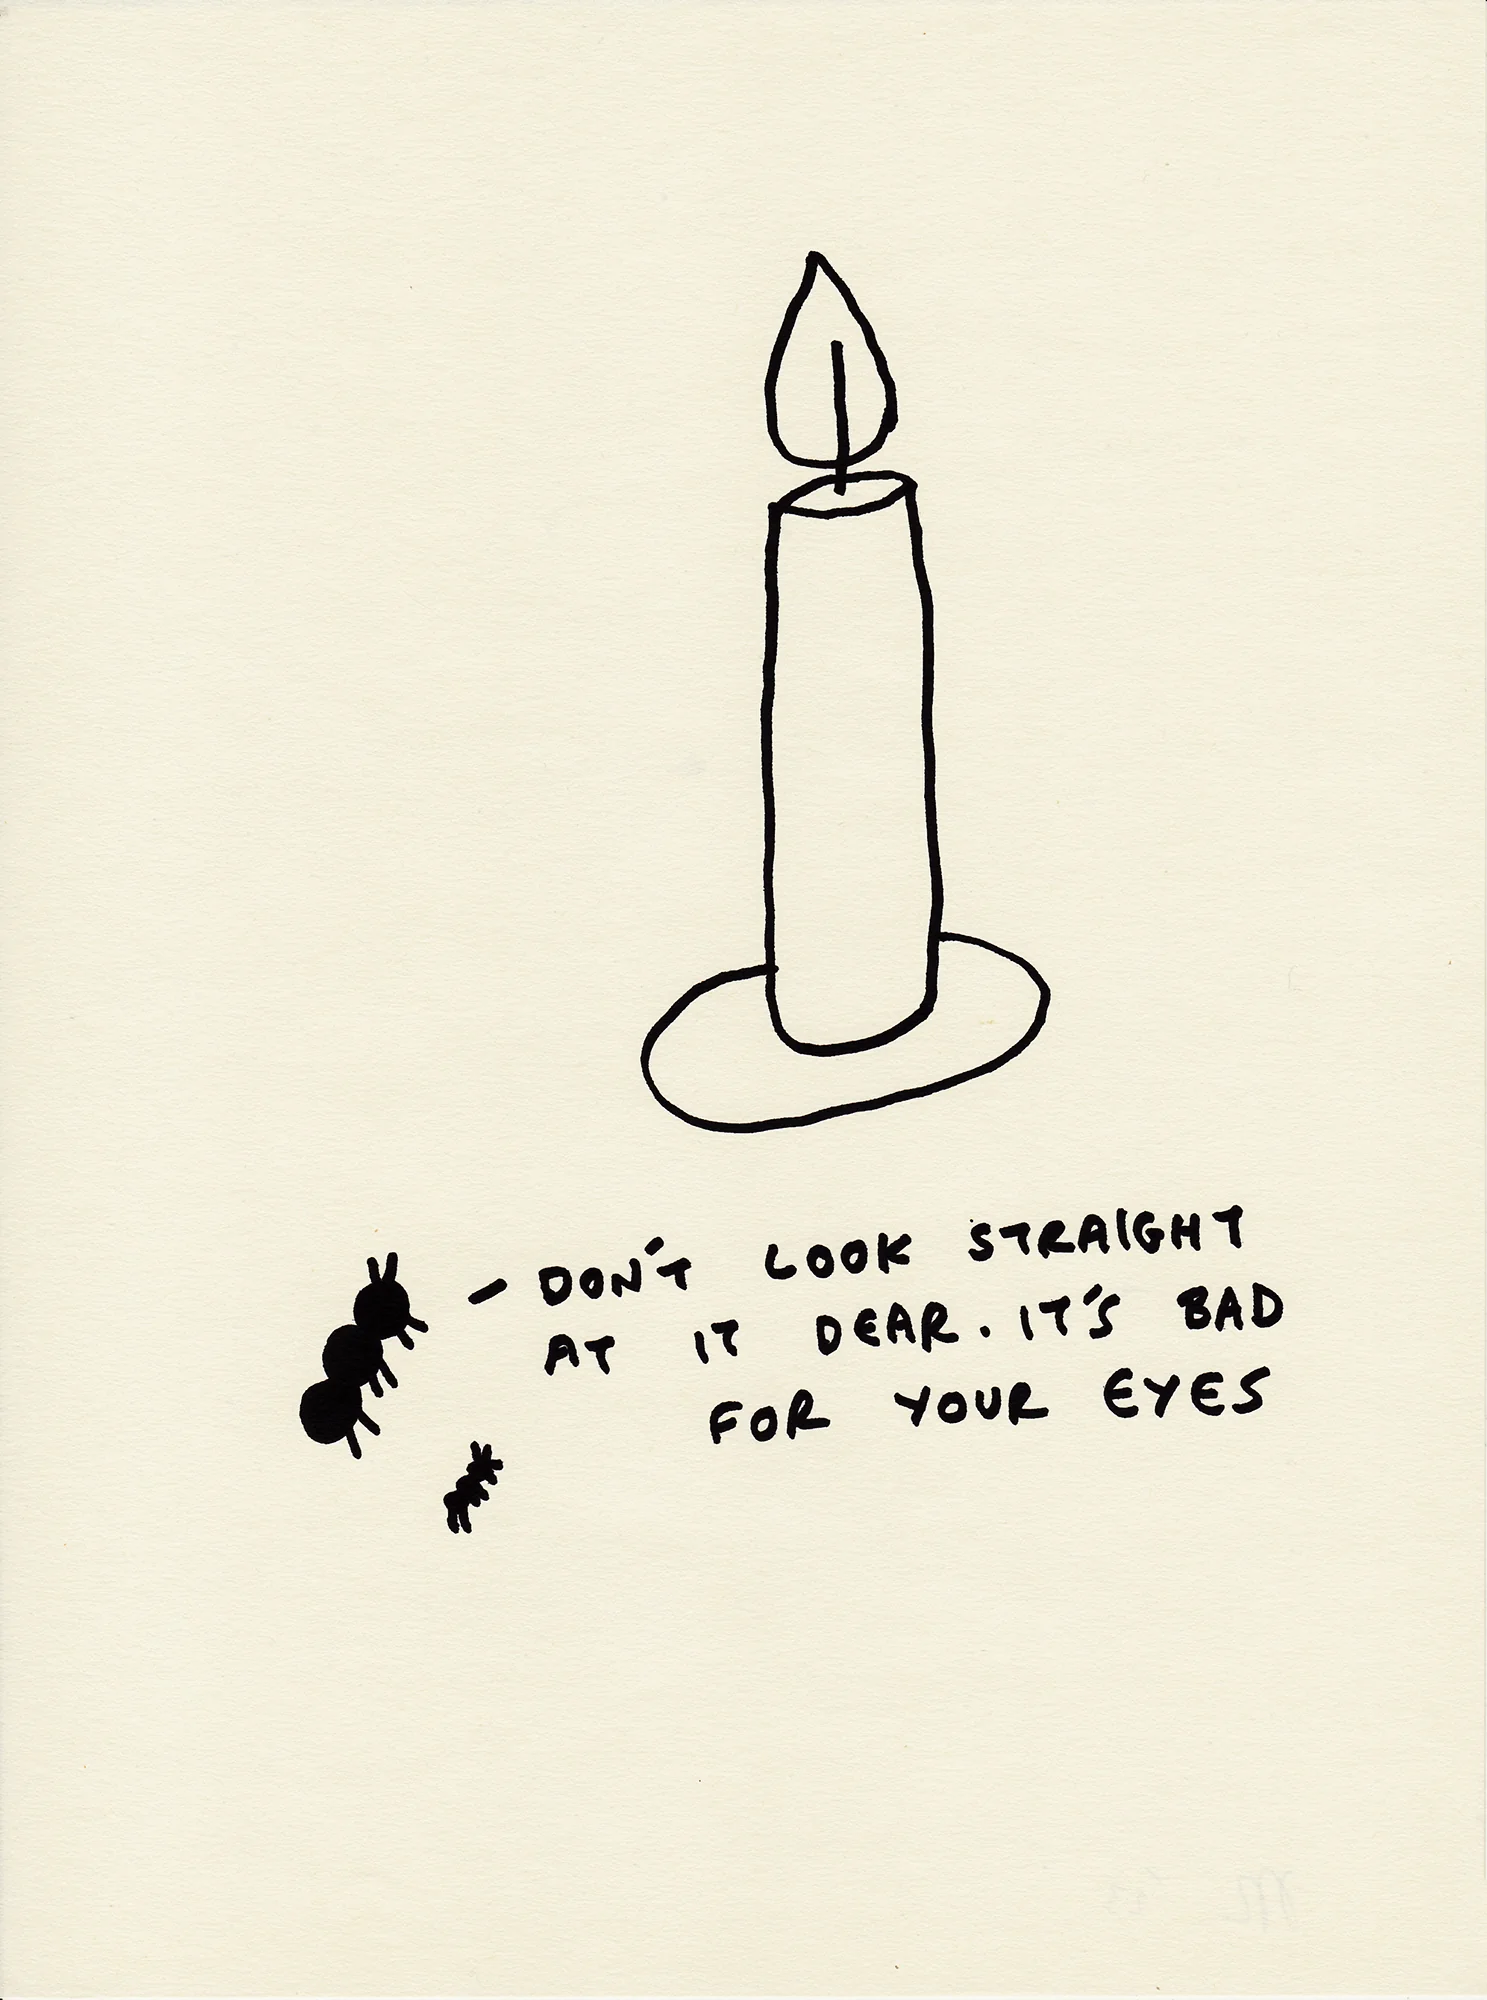 - DON'T LOOK STRAIGHT
AT IT DEAR. IT'S BAD
FOR YOUR EYES